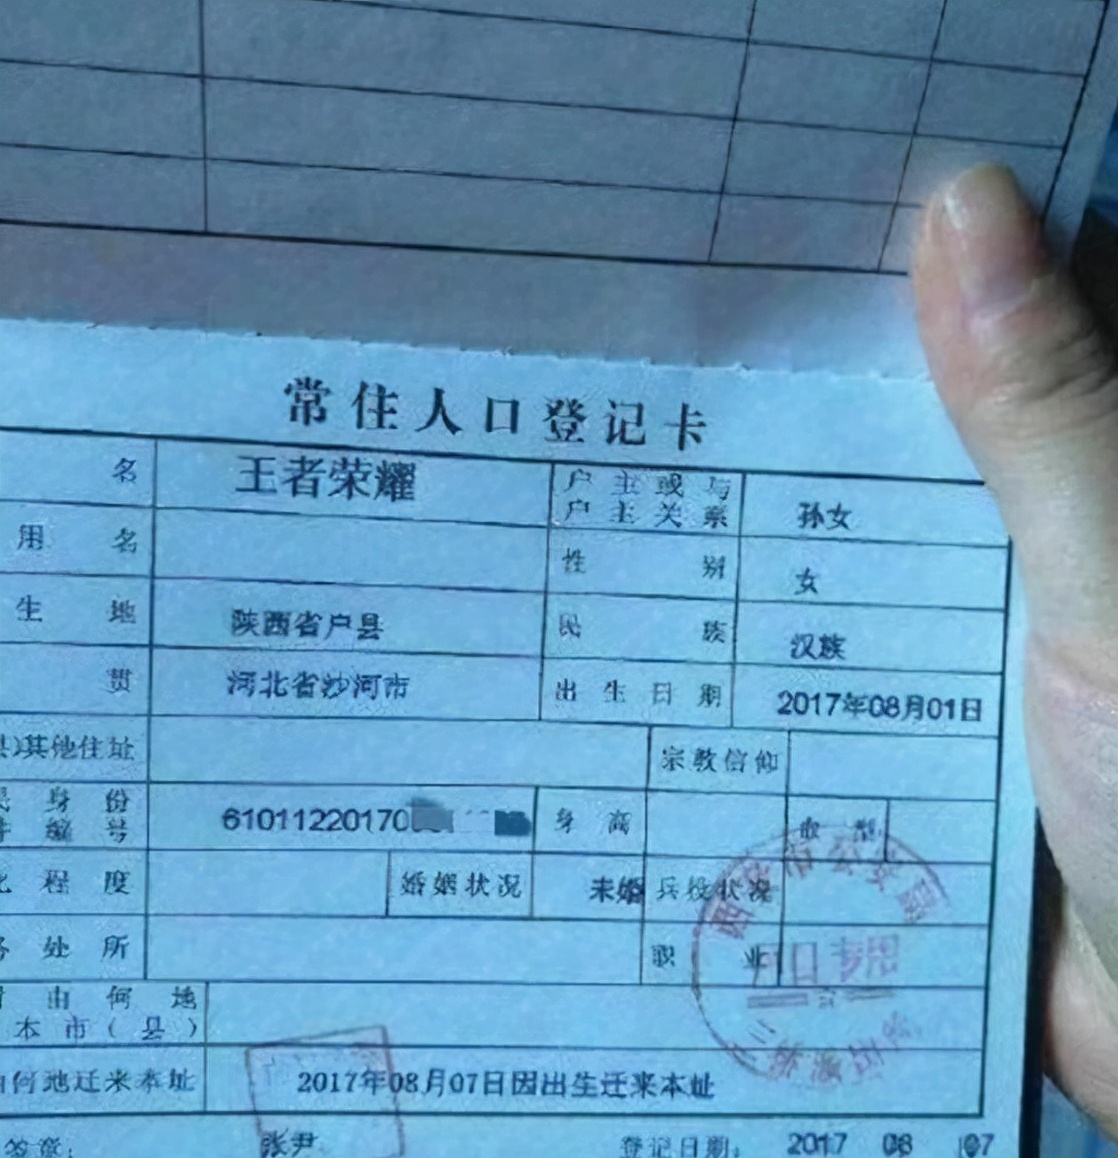 常住人口登记卡
名 王者荣耀 户主或与户主关系 孙女
用名 性别 女
生地 陕西省户县 民族 汉族
贯 河北省沙河市 出生日期 2017年08月01日
县)其他住址 宗教信仰
民身份
件编号 61011220170 身高 血型
化程度 婚姻状况 未婚 兵役状况
务处所 职业
由何地
本市(县)
由何地迁来本址 2017年08月07日因出生迁来本址
签章: 张尹 登记日期: 2017 08 07
西安市公安局
户口专用